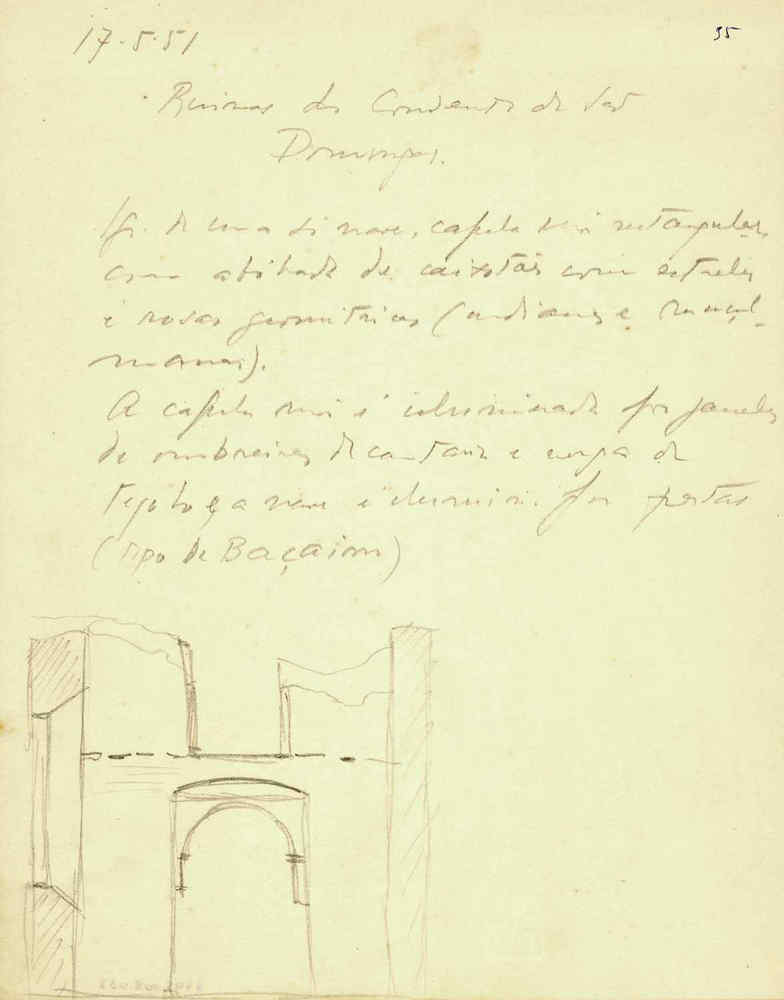 17-5-51
35
Ruinas do Convento de São
Domingos.
Ig. de uma só nave, capela mór rectangular,
com abóbada de caixotões com estrelas
e rosas geométricas (indianas e muçul-
manas).
A capela mór é iluminada por janelas
de ombreiras de cantaria e verga de
tijolo e a nave é ilumin. por portas
(tipo de Baçaim)